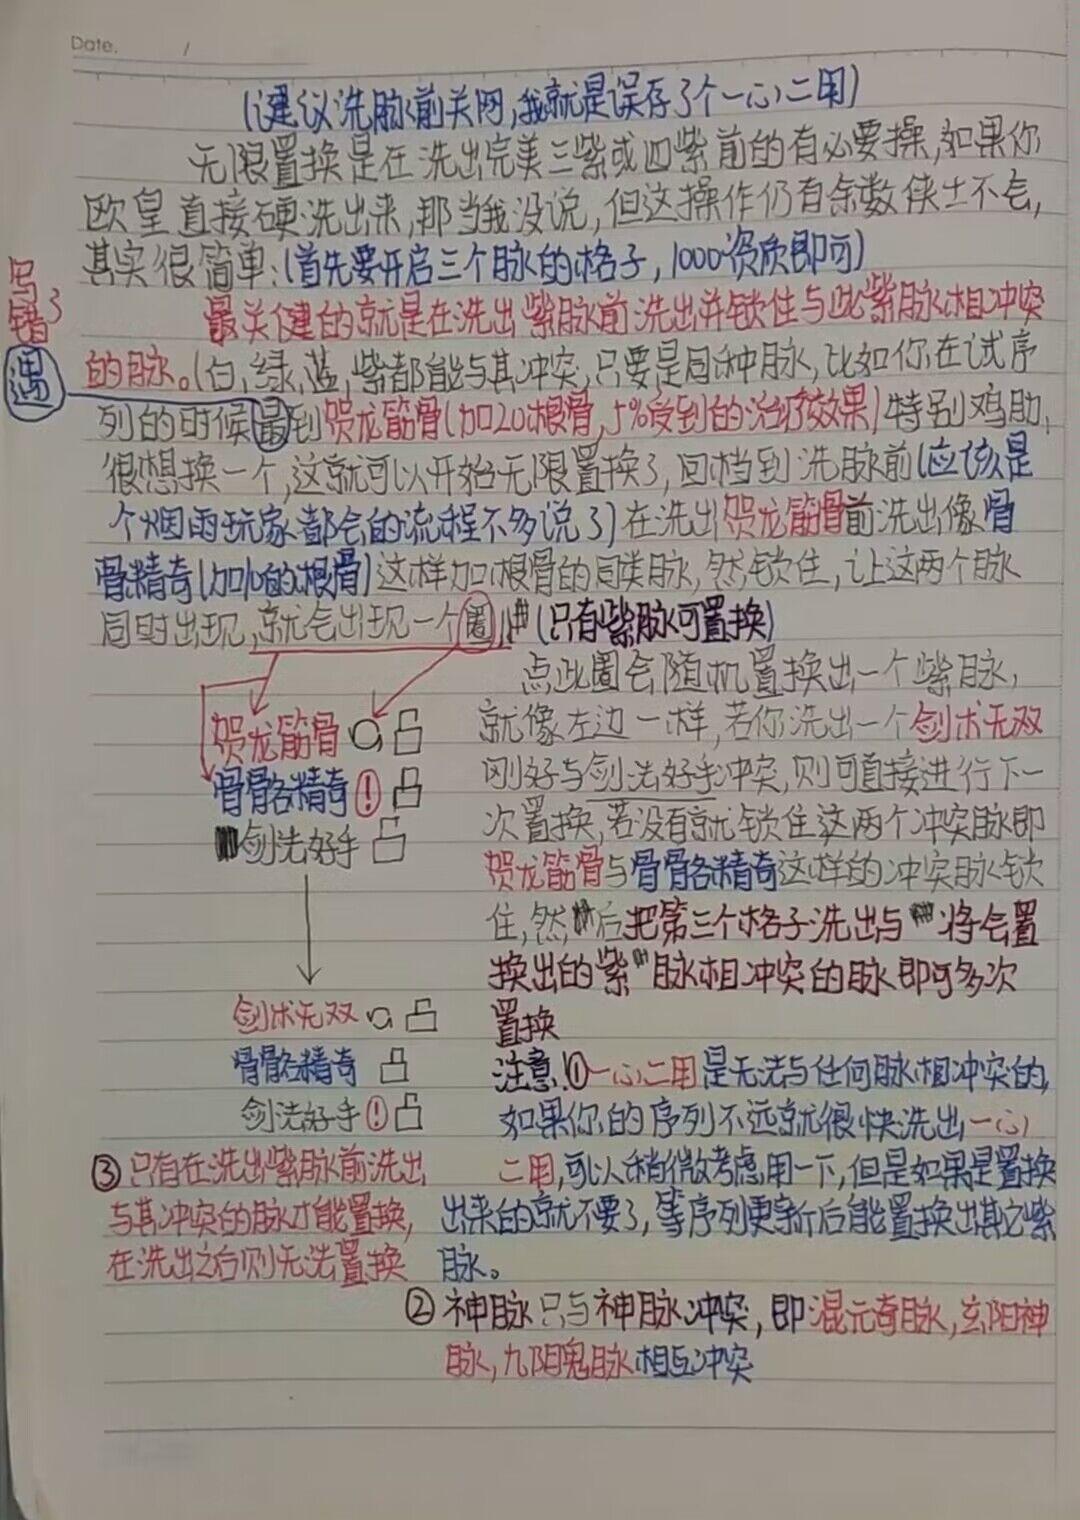 Date.
(建议洗脉前关网,我就是误存了个一心二用)
无限置换是在洗出完美三紫或四紫前的有必要操,如果你
欧皇直接硬洗出来,那当我没说,但这操作仍有余数侠士不会,
其实很简单:(首先要开启三个脉的格子,1000资质即可)
写错了
遇
最关健的就是在洗出紫脉前洗出并锁住与此紫脉相冲突
的脉。(白,绿,蓝,紫都能与其冲突,只要是同种脉,比如你在试序
列的时候最到贺龙筋骨(加20根骨,5%受到的治疗效果)特别鸡肋,
很想换一个,这就可以开始无限置换了,回档到洗脉前(应该是
个烟雨玩家都会的流程不多说了)在洗出贺龙筋骨前洗出像骨
骨精奇(加10的根骨)这样加根骨的同类脉,然锁住,让这两个脉
同时出现,就会出现一个圈(只有紫脉可置换)
贺龙筋骨
骨骼精奇!
剑法好手
剑术无双
骨骼精奇
剑法好手!
点此圈会随机置换出一个紫脉,
就像左边一样,若你洗出一个剑术无双
刚好与剑法好手冲突,则可直接进行下一
次置换,若没有就锁住这两个冲突脉即
贺龙筋骨与骨骼精奇这样的冲突脉锁
住,然后把第三个格子洗出与将会置
换出的紫脉相冲突的脉即可多次
置换
注意!①一心二用是无法与任何脉相冲突的,
如果你的序列不远就很快洗出一心
二用,可以稍微考虑用一下,但是如果是置换
出来的就不要了,等序列更新后能置换出其它紫
脉。
②神脉只与神脉冲突,即混元奇脉,玄阳神
脉,九阴鬼脉相互冲突
③只有在洗出紫脉前洗出
与其冲突的脉才能置换,
在洗出之后则无法置换